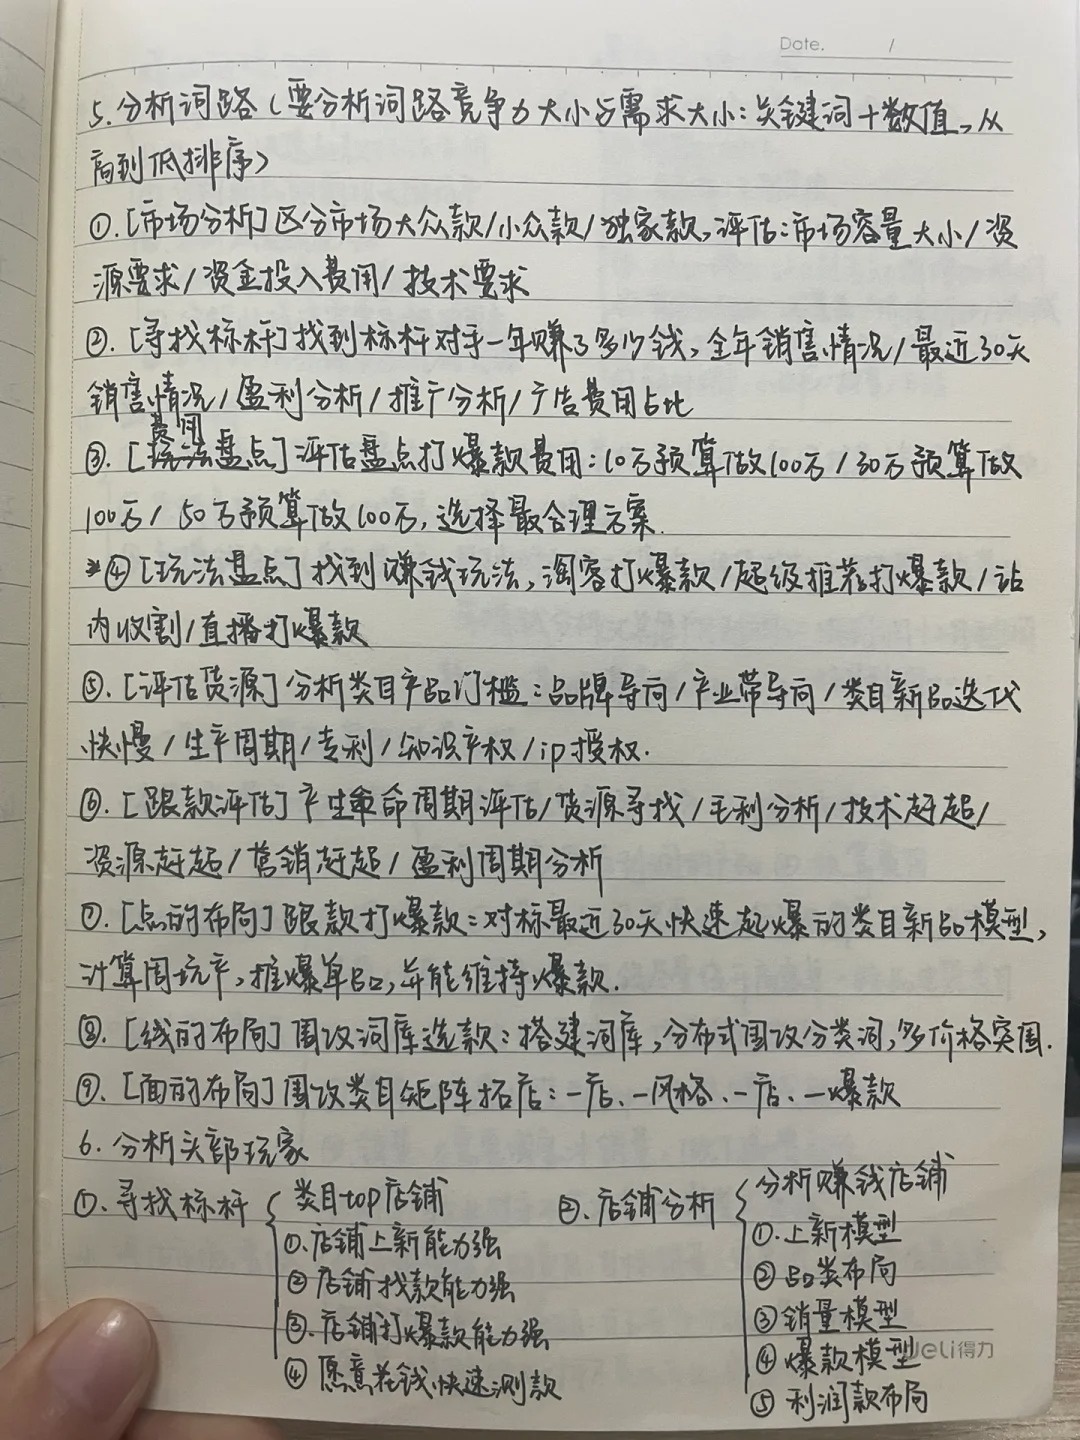 Date. /
5. 分析词路（要分析词路竞争力大小与需求大小：关键词+数值，从
高到低排序）
①.[市场分析]区分市场大众款/小众款/独家款，评估：市场容量大小/资
源要求/资金投入费用/技术要求
②.[寻找标杆]找到标杆对手一年赚了多少钱，全年销售情况/最近30天
销售情况/盈利分析/推广分析/广告费用占比
费用
③.[盘点]评估盘点打爆款费用：10万预算做100万/30万预算做
100万/50万预算做100万，选择最合理方案.
*④[玩法盘点]找到赚钱玩法，淘客打爆款/超级推荐打爆款/站
内收割/直播打爆款
⑤.[评估货源]分析类目产品门槛：品牌导向/产业带导向/类目新品迭代
快慢/生产周期/专利/知识产权/ip授权.
⑥.[跟款评估]产生命周期评估/货源寻找/毛利分析/技术赶超/
资源赶超/营销赶超/盈利周期分析
⑦.[点的布局]跟款打爆款：对标最近30天快速起爆的类目新品模型，
计算周坑产，推爆单品，并能维持爆款.
⑧.[线的布局]围攻词库选款：搭建词库，分布式围攻分类词，多价格突围.
⑨.[面的布局]围攻类目矩阵拓店：一店、一风格、一店、一爆款
6. 分析头部玩家
①.寻找标杆{类目top店铺
①.店铺上新能力强
②店铺找款能力强
③.店铺打爆款能力强
④愿意花钱快速测款
②.店铺分析{分析赚钱店铺
①.上新模型
②品类布局
③销量模型
④爆款模型
⑤利润款布局
deli得力